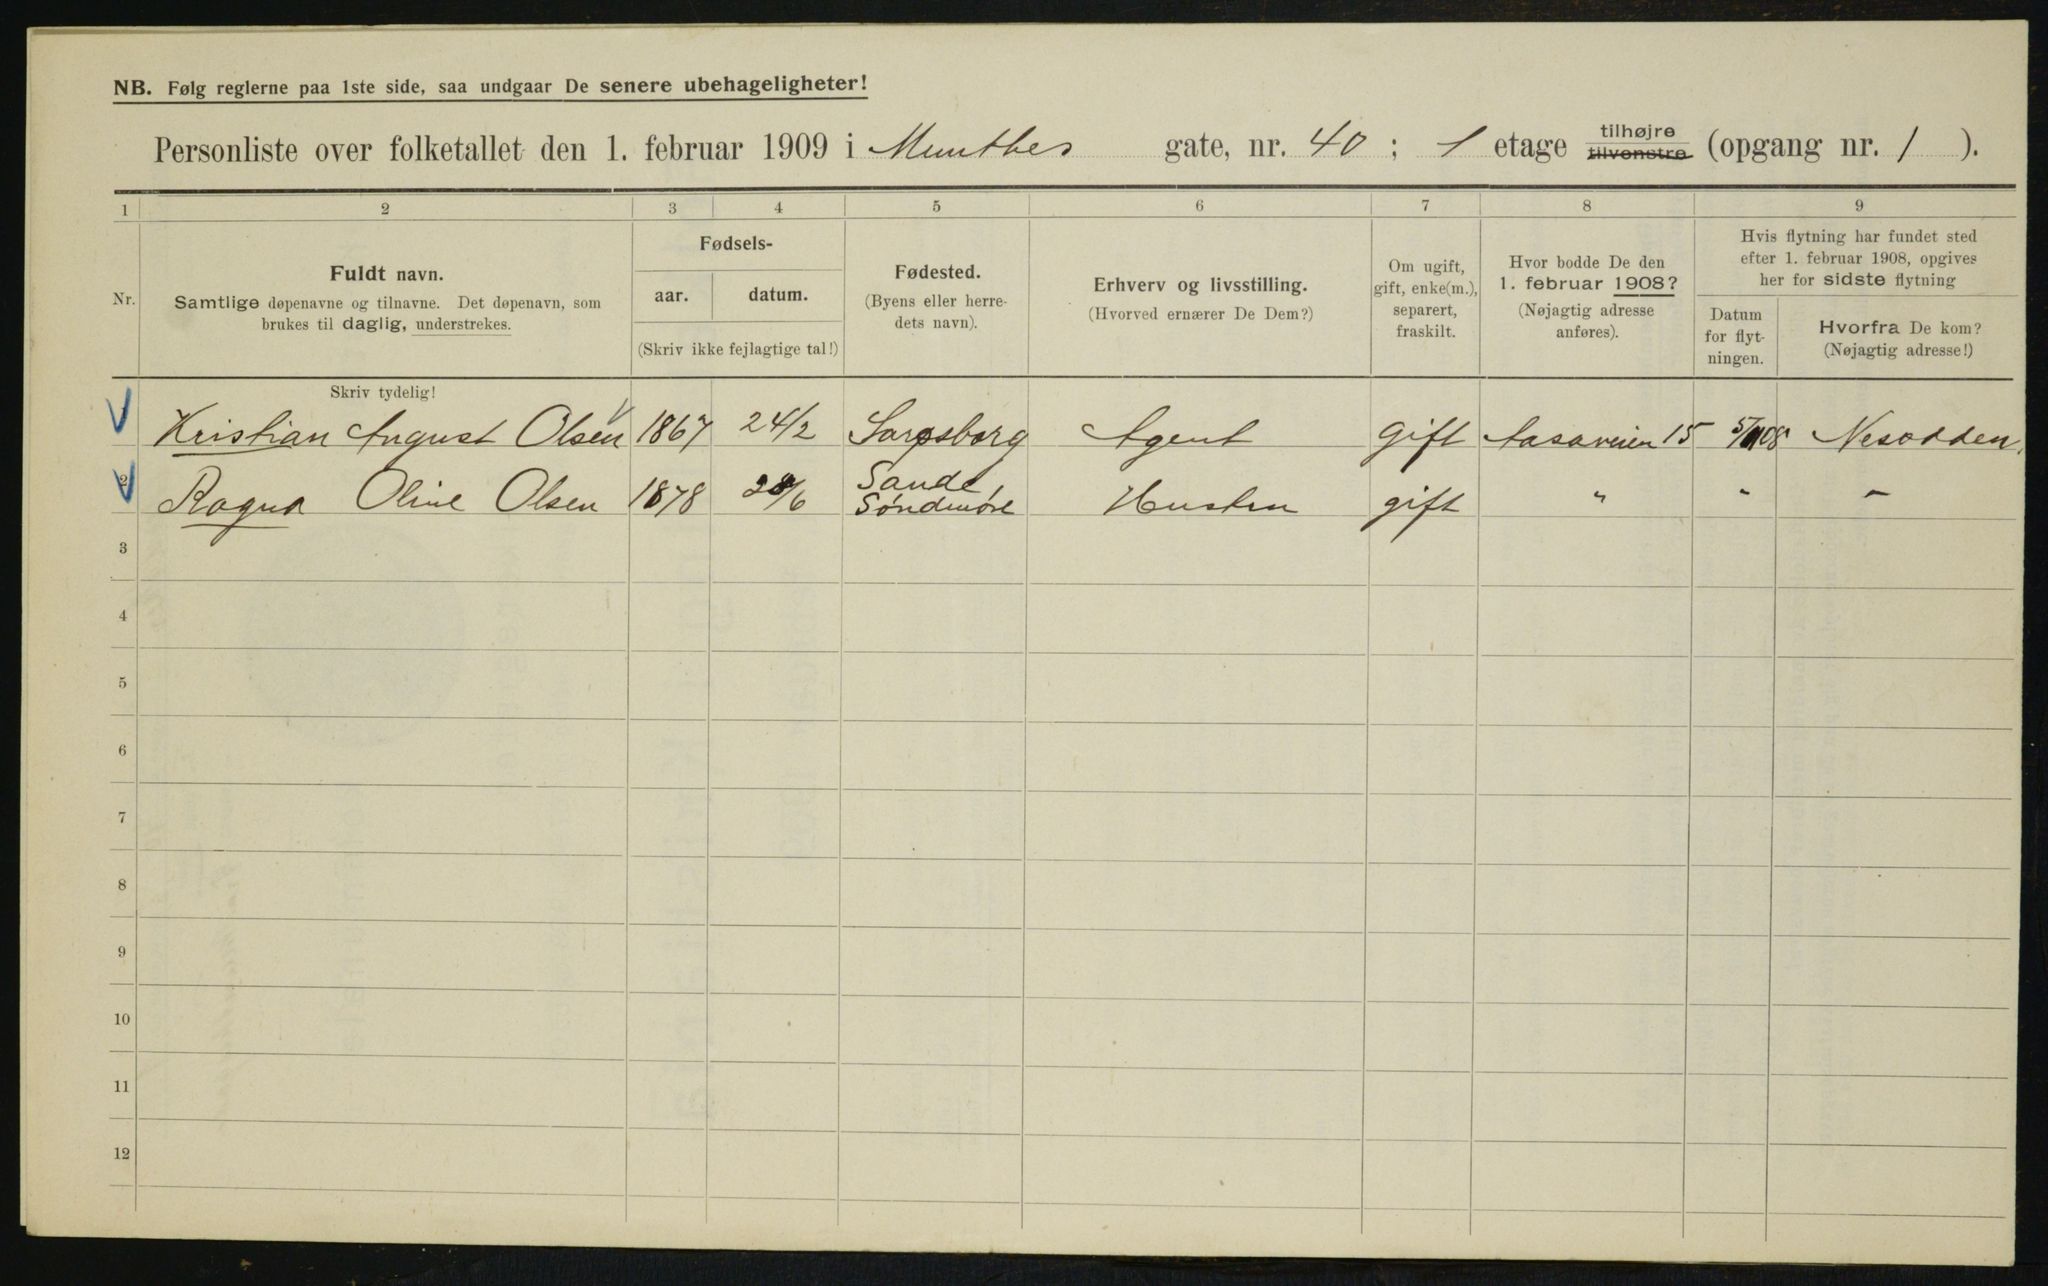 NB. Følg reglerne paa 1ste side, saa undgaar De senere ubehageligheter!
Personliste over folketallet den 1. februar 1909 i Munthes gate, nr. 40 ; 1 etage tilhøjre tilvenstre (opgang nr. 1 ).
1 2 3 4 5 6 7 8 9
Nr.
Fuldt navn.
Samtlige døpenavne og tilnavne. Det døpenavn, som
brukes til daglig, understrekes.
Fødsels-
aar. datum.
(Skriv ikke fejlagtige tal!)
Fødested.
(Byens eller herre-
dets navn).
Erhverv og livsstilling.
(Hvorved ernærer De Dem?)
Om ugift,
gift, enke(m.),
separert,
fraskilt.
Hvor bodde De den
1. februar 1908?
(Nøjagtig adresse
anføres).
Hvis flytning har fundet sted
efter 1. februar 1908, opgives
her for sidste flytning
Datum
for flyt-
ningen.
Hvorfra De kom?
(Nøjagtig adresse!)
Skriv tydelig!
1 Kristian August Olsen 1867 24/2 Sarpsborg Agent gift Aasaveien 15 Nesodden
2 Ragna Oline Olsen 1878 Sande, Søndmøre Hustru gift " " "
3
4
5
6
7
8
9
10
11
12